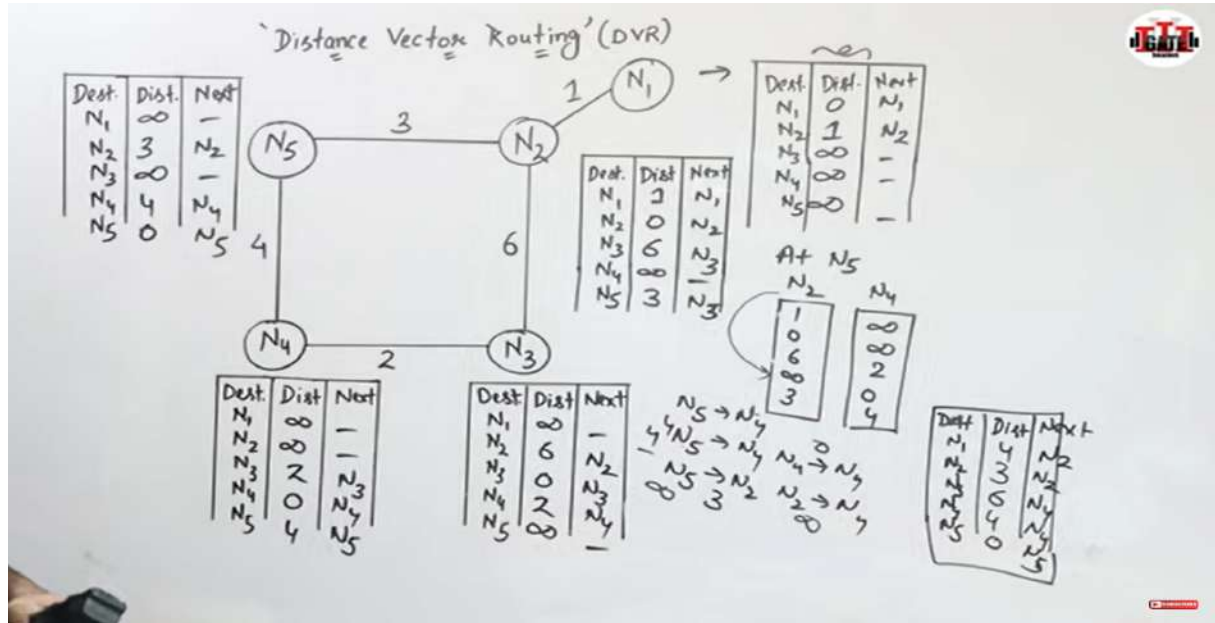 'Distance Vector Routing' (DVR)
Dest. Dist. Next
N1 ∞ -
N2 3 N2
N3 ∞ -
N4 4 N4
N5 0 N5
N5
3
N2
1
N1
→
Dest. Dist. Next
N1 0 N1
N2 1 N2
N3 ∞ -
N4 ∞ -
N5 ∞ -
Dest. Dist Next
N1 1 N1
N2 0 N2
N3 6 N3
N4 ∞ -
N5 3 N3
4
6
N4
2
N3
At N5
N2 N4
1 ∞
0 ∞
6 2
∞ 0
3 4
Dest. Dist Next
N1 ∞ -
N2 ∞ -
N3 2 N3
N4 0 N4
N5 4 N5
Dest. Dist Next
N1 ∞ -
N2 6 N2
N3 0 N3
N4 2 N4
N5 ∞ -
N5 → N4
4 4 N5 → N4 0 N4 → N4
N5 → N2 N2 → N4
∞ 3 ∞
Dest Dist Next
N1 4 N2
N2 3 N2
N3 6 N4
N4 4 N4
N5 0 N5
GATE